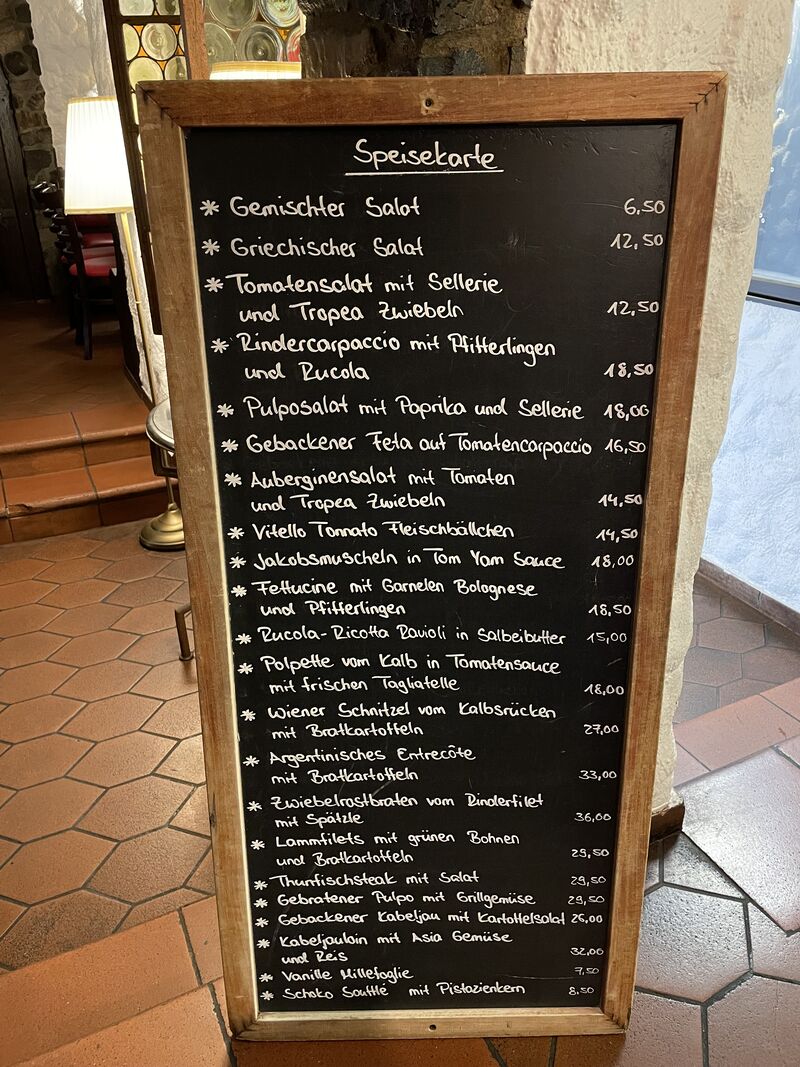 Speisekarte
* Gemischter Salat 6.50
* Griechischer Salat 12,50
* Tomatensalat mit Sellerie
und Tropea Zwiebeln 12,50
* Rindercarpaccio mit Pfifferlingen
und Rucola 18,50
* Pulposalat mit Paprika und Sellerie 18,00
* Gebackener Feta auf Tomatencarpaccio 16,50
* Auberginensalat mit Tomaten
und Tropea Zwiebeln 14,50
* Vitello Tonnato Fleischbällchen 14,50
* Jakobsmuscheln in Tom Yam Sauce 18,00
* Fettucine mit Garnelen Bolognese
und Pfifferlingen 18,50
* Rucola-Ricotta Ravioli in Salbeibutter 15,00
* Polpette vom Kalb in Tomatensauce
mit frischen Tagliatelle 18,00
* Wiener Schnitzel vom Kalbsrücken
mit Bratkartoffeln 27,00
* Argentinisches Entrecôte
mit Bratkartoffeln 33,00
* Zwiebelrostbraten vom Rinderfilet
mit Spätzle 36,00
* Lammfilets mit grünen Bohnen
und Bratkartoffeln 29,50
* Thunfischsteak mit Salat 29,50
* Gebratener Pulpo mit Grillgemüse 29,50
* Gebackener Kabeljau mit Kartoffelsalat 26,00
* Kabeljauloin mit Asia Gemüse
und Reis 32,00
* Vanille Millefoglie 7,50
* Schoko Soufflé mit Pistazienkern 8,50